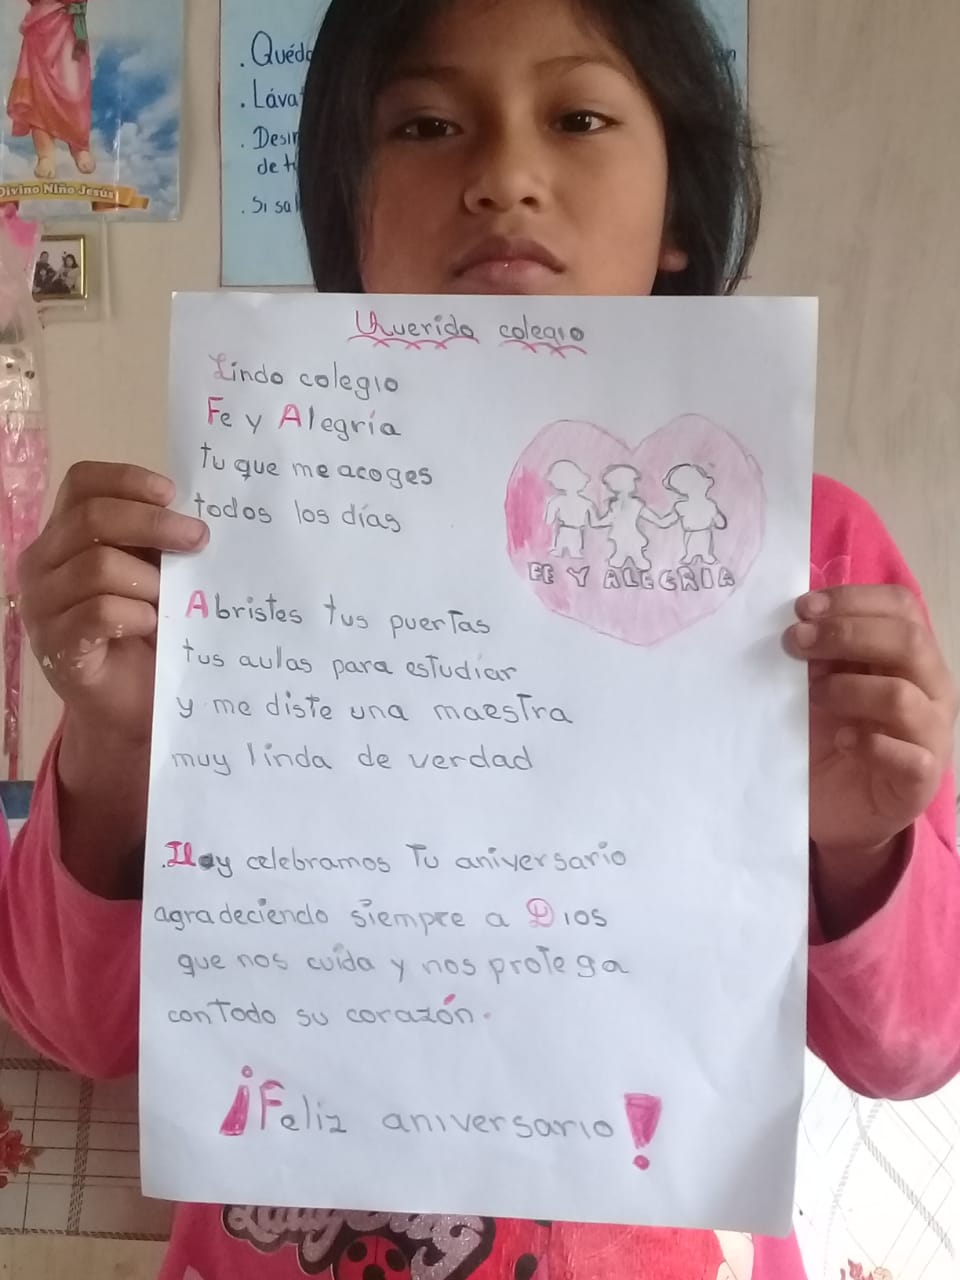 Divino Niño Jesús
. Quéd
. Láva
. Desin
de t
. Si sal
Querido colegio
Lindo colegio
Fe y Alegría
tu que me acoges
todos los días
FE Y ALEGRIA
Abristes tus puertas
tus aulas para estudiar
y me diste una maestra
muy linda de verdad
.Hoy celebramos Tu aniversario
agradeciendo siempre a Dios
que nos cuida y nos protega
con Todo su corazón.
¡Feliz aniversario!